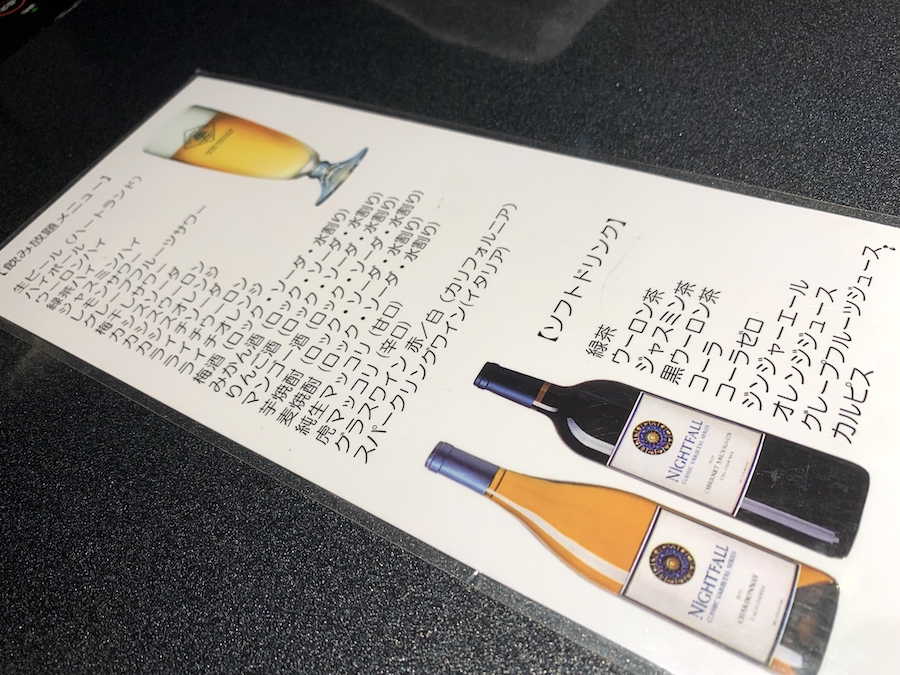 【飲み放題メニュー】
生ビール（ハートランド）
ハイボール
ウーロンハイ
緑茶ハイ
ジャスミンハイ
レモンサワー
グレープフルーツサワー
梅干しサワー
カシスソーダ
カシスオレンジ
カシスウーロン
ライチソーダ
ライチオレンジ
ライチウーロン
梅酒（ロック・ソーダ・水割り）
みかん酒（ロック・ソーダ・水割り）
りんご酒（ロック・ソーダ・水割り）
マンゴー酒（ロック・ソーダ・水割り）
芋焼酎（ロック・ソーダ・水割り）
麦焼酎（ロック・ソーダ・水割り）
純生マッコリ（甘口）
虎マッコリ（辛口）
グラスワイン 赤／白（カリフォルニア）
スパークリングワイン(イタリア)
【ソフトドリンク】
緑茶
ウーロン茶
ジャスミン茶
黒ウーロン茶
コーラ
コーラゼロ
ジンジャーエール
オレンジジュース
グレープフルーツジュース
カルピス
NIGHTFALL
CLASSIC VARIETAL SERIES
CABERNET SAUVIGNON
NIGHTFALL
CLASSIC VARIETAL SERIES
CHARDONNAY